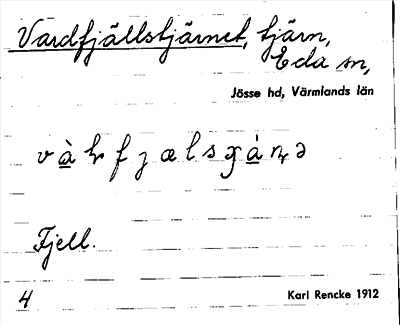 Vardfjällstjärnet, tjärn,
Eda sn,
Jösse hd, Värmlands län
Fjell.
4 Karl Rencke 1912